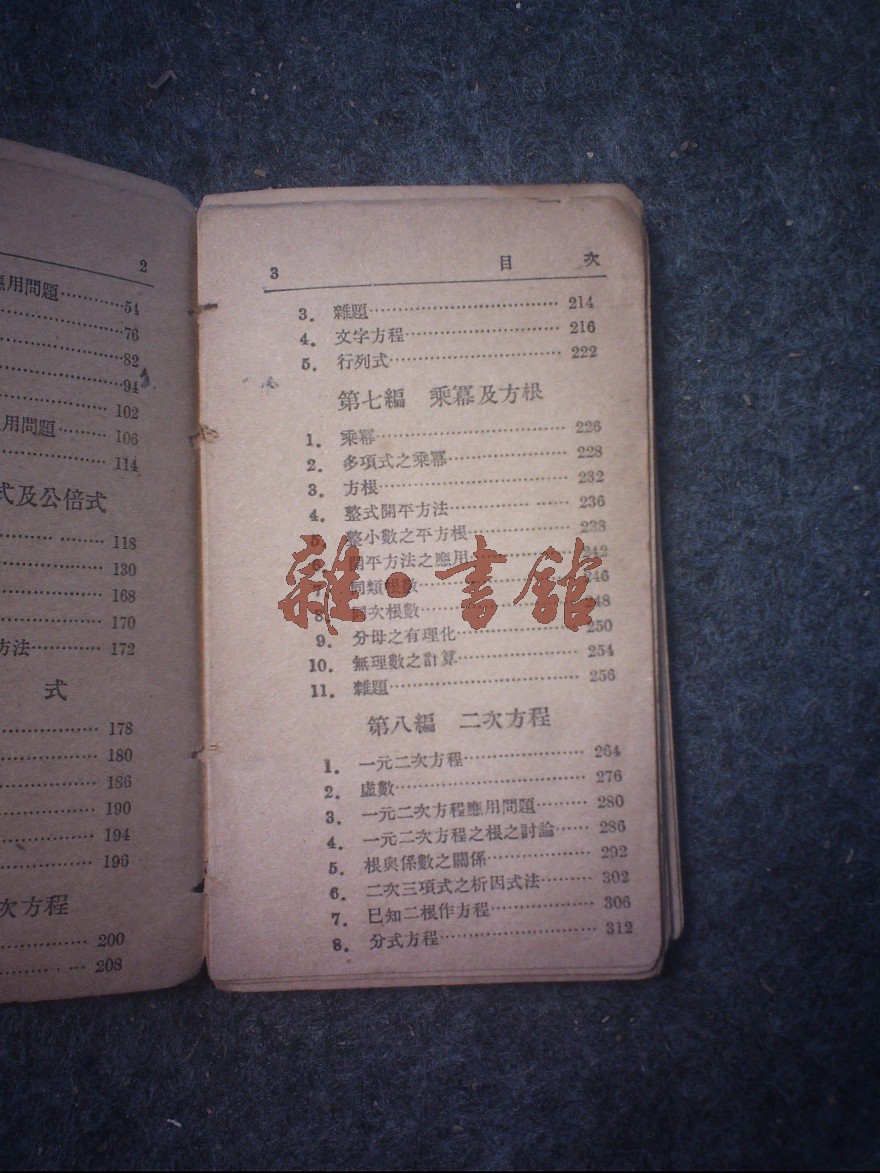 2
應用問題…………54
76
82
94
102
用問題……… 106
114
式及公倍式
118
130
168
170
方法………… 172
式
178
180
186
190
194
196
次方程
200
208
3 目 次
3. 雜題……………………………… 214
4. 文字方程………………………… 216
5. 行列式…………………………… 222
第七編 乘冪及方根
1. 乘冪……………………………… 226
2. 多項式之乘冪…………………… 228
3. 方根……………………………… 232
4. 整式開平方法…………………… 236
5. 整小數之平方根………………… 238
6. 開平方法之應用………………… 242
7. 同類根數………………………… 246
8. 同次根數………………………… 248
9. 分母之有理化…………………… 250
10. 無理數之計算…………………… 254
11. 雜題……………………………… 256
第八編 二次方程
1. 一元二次方程…………………… 264
2. 虛數……………………………… 276
3. 一元二次方程應用問題………… 280
4. 一元二次方程之根之討論…… 286
5. 根與係數之關係………………… 292
6. 二次三項式之析因式法………… 302
7. 已知二根作方程………………… 306
8. 分式方程………………………… 312
雜·書館